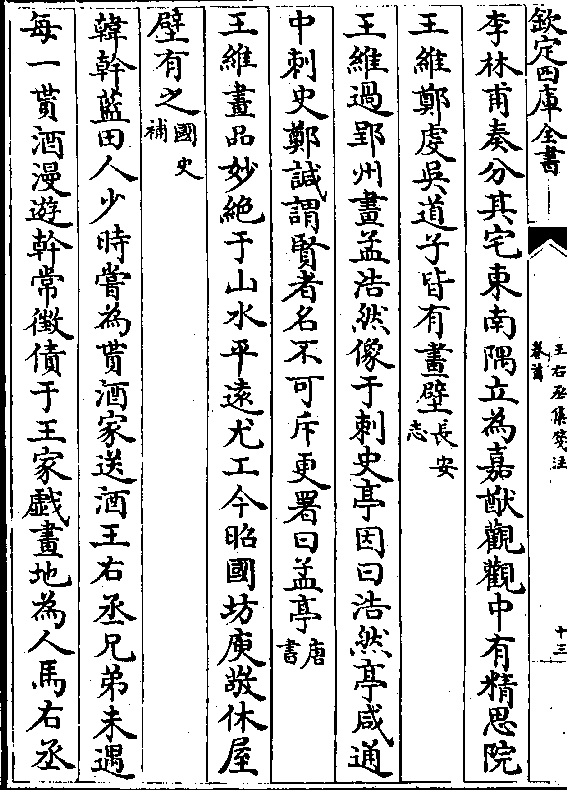 欽定四庫全書
王右丞集箋注
卷首
十三
李林甫奏分其宅東南隅立為嘉猷觀觀中有精思院
王維鄭虔吳道子皆有畫壁長安志
王維過郢州畫孟浩然像于刺史亭因曰浩然亭咸通
中刺史鄭諴謂賢者名不可斥更署曰孟亭唐書
王維畫品妙絶于山水平遠尤工今昭國坊庾敬休屋
壁有之國史補
韓幹藍田人少時嘗為貰酒家送酒王右丞兄弟未遇
每一貰酒漫遊幹常徵債于王家戲畫地為人馬右丞